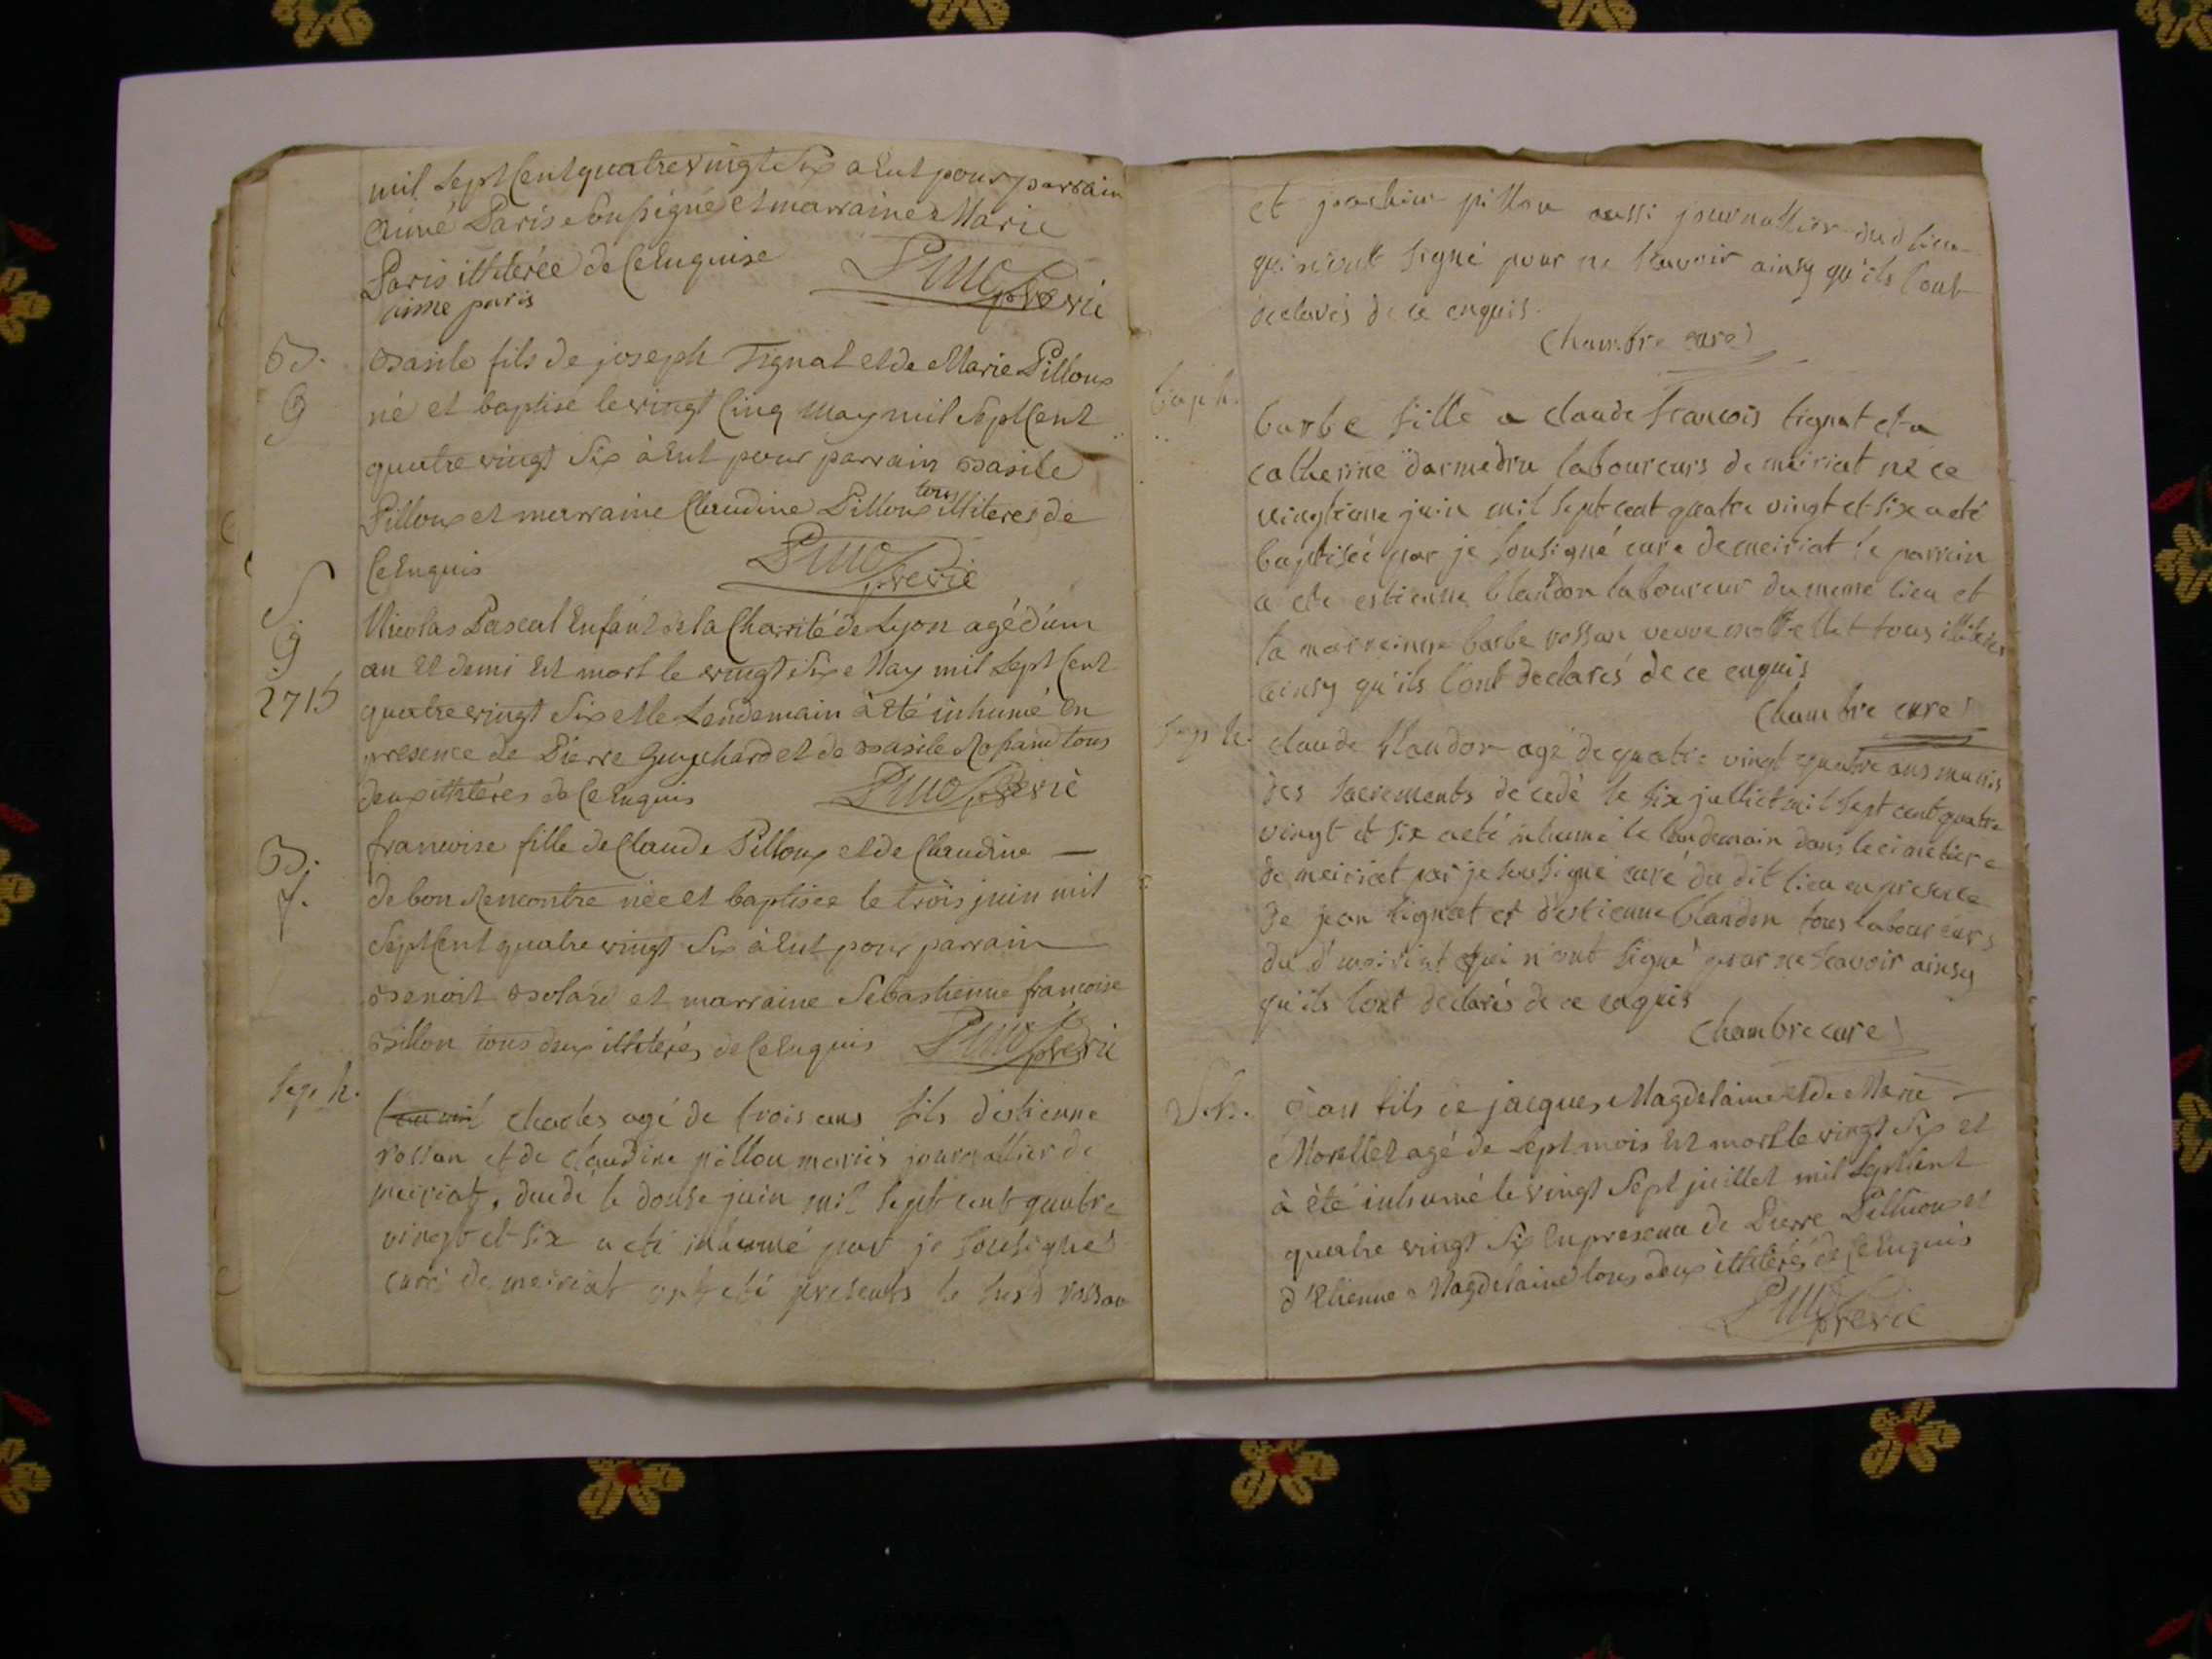 mil Sept Cent quatre vingt Six a Eut pour parrain
Aimé Paris Soussigné et marraine Marie
Paris illiterée de Ce Enquise
aime paris
B.
Basile fils de joseph Tignat et de Marie Pilloux
g
né et baptisé le vingt Cinq May mil Sept Cent
quatre vingt Six à Eut pour parrain Basile
Pilloux et marraine Claudine Pilloux tous illiteres de
Ce Enquis
S
Nicolas Pascal Enfant de la Charité de Lyon agé d'um
g
an Et demi Est mort le vingt Six May mil Sept Cent
2715
quatre vingt Six et le Lendemain à Eté inhumé En
presence de Pierre Guychard et de Basile tous
deux illitéres de Ce Enquis
B.
francoise fille de Claude Pilloux et de Claudine
f.
de bon Rencontre née et baptisée le trois juin mil
Sept Cent quatre vingt Six à Eut pour parrain
Benoit Bolard et marraine Sebastienne francoise
Billon tous deux illitérés de Ce Enquis
Sep. h.
charles agé de trois ans fils d'estienne
rossan et de claudine pillou mariés journallier de
meiriat, decedé le douse juin mil sept cent quatre
vingt et six a eté inhumé par je sousigné
curé de meiriat ont eté presents le susd rossan
et joachim pillou aussi journallier dud lieu
qui n'ont signé pour ne scavoir ainsy qu'ils l'ont
declarés de ce enquis.
Chambre curé
bap h.
barbe fille a claude francois tignat et a
catherine darmedru laboureurs de meiriat né ce
vingtieme juin mil sept cent quatre vingt et six a eté
baptiseé par je sousigné curé de meiriat le parrain
a ete estienne blandon laboureur du meme lieu et
la marreinne barbe rossan veuve morellet tous illiterés
ainsy qu'ils l'ont declarés de ce enquis
Chambre curé
Sep h.
claude blandon agé de quatre vingt quatre ans munis
des sacrements decedé le six julliet mil sept cent quatre
vingt et six a eté inhumé le landemain dans le cimetiere
de meiriat par je sousigné curé du dit lieu en presence
de jean tignat et d'estienne blandon tous laboureurs
du d meiriat qui n'ont signé pour ne scavoir ainsy
qu'ils l'ont declarés de ce enquis
Chambre curé
S. h.
jean fils de jacques Magdelaine et de Marie
Morellet agé de Sept mois Est mort le vingt Six et
à été inhumé le vingt Sept juillet mil Sept Cent
quatre vingt Six En presence de Pierre Pilluou et
d'Etienne Magdelaine tous deux illitérés de Ce Enquis